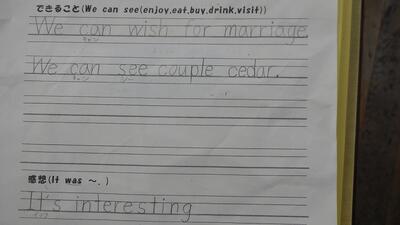 できること(We can see(enjoy,eat,buy,drink,visit))
We can wish for marriage.
キャン
We can see couple cedar.
キャン シー
感想(It was ～.)
It's interesting